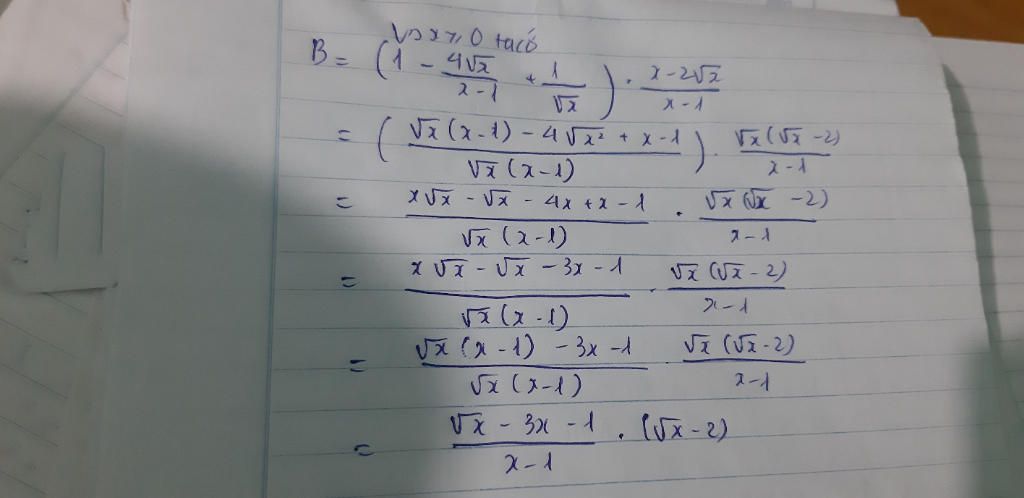 Với x ≥ 0 ta có
B = (1 - 4√x/(x-1) + 1/√x) . (x-2√x)/(x-1)
= ((√x(x-1) - 4√x² + x-1)/(√x(x-1))) . (√x(√x-2))/(x-1)
= (x√x - √x - 4x + x - 1)/(√x(x-1)) . (√x(√x-2))/(x-1)
= (x√x - √x - 3x - 1)/(√x(x-1)) . (√x(√x-2))/(x-1)
= (√x(x-1) - 3x - 1)/(√x(x-1)) . (√x(√x-2))/(x-1)
= (√x - 3x - 1)/(x-1) . (√x-2)